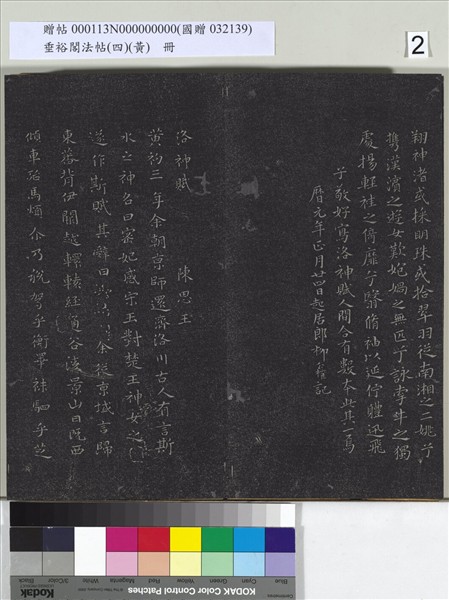 贈帖 000113N000000000(國贈 032139)
垂裕閣法帖(四)(黃) 冊
2
翔神渚或採明珠或拾翠羽從南湘之二姚兮
攜漢濱之遊女歎匏媧之無匹兮詠牽牛之獨
處揚輕袿之倚靡兮翳脩袖以延佇體迅飛
子敬好寫洛神賦人間合有數本此其一焉
曆元年正月廿四日起居郎柳 記
洛神賦 陳思王
黃初三年余朝京師還濟洛川古人有言斯
水之神名曰宓妃感宋玉對楚王神女之
遂作斯賦其辭曰 余從京域言歸
東藩背伊闕越轘轅經通谷陵景山日既西
傾車殆馬煩尒乃稅駕乎蘅皋秣駟乎芝
Blue Cyan Green Yellow Red Magenta White 3/Color Black
KODAK Color Control Patches
Kodak